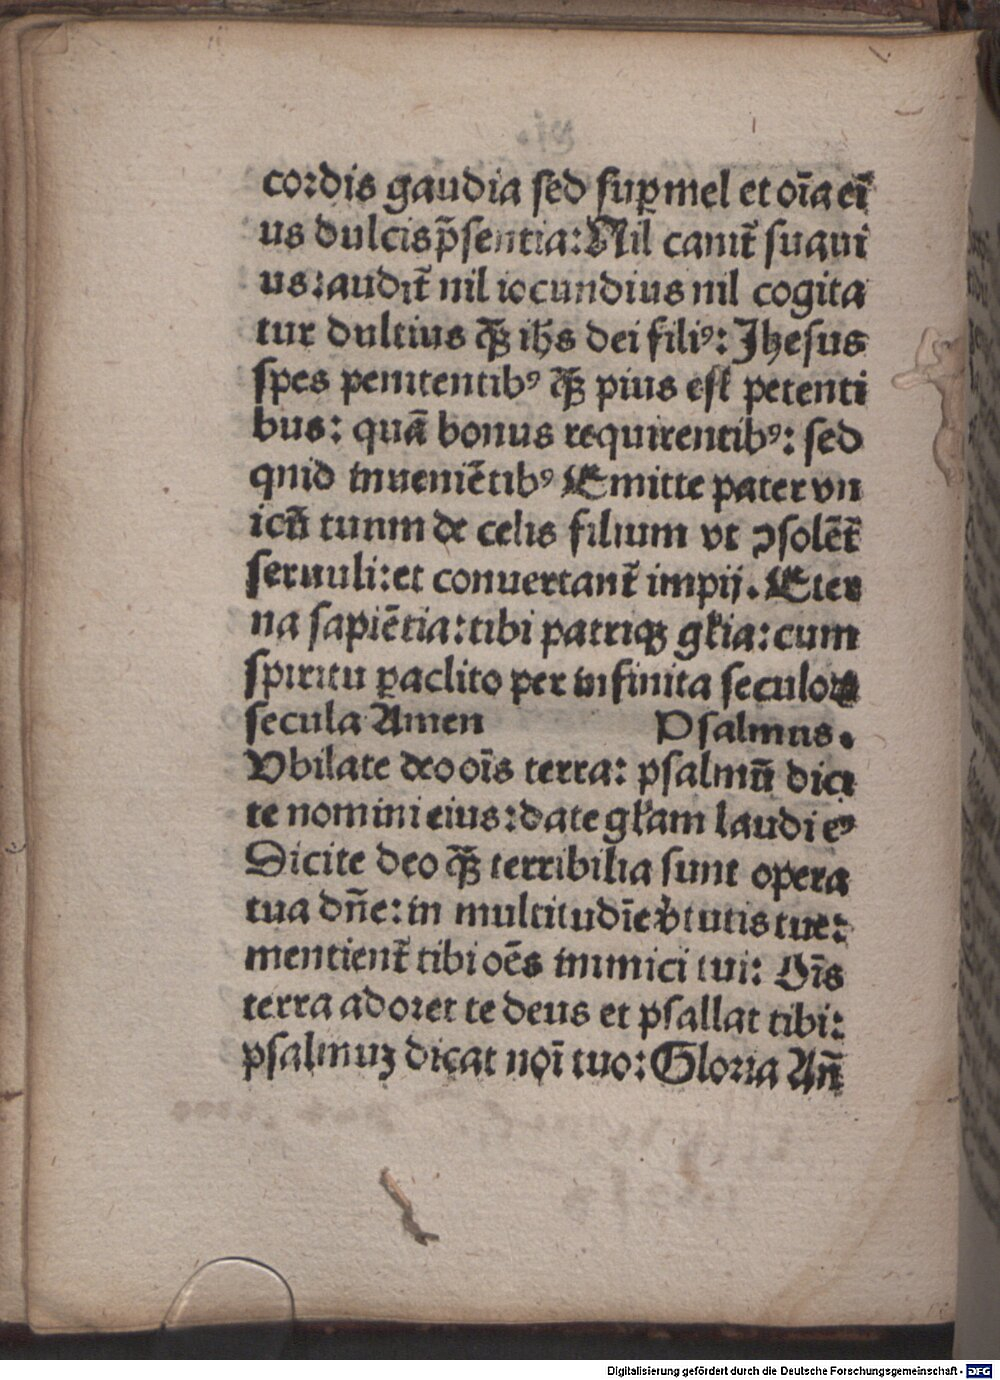 cordis gaudia sed suꝑ mel et oīa eī
us dulcis p̄sentia: Nil canit̄ suaui
us: audit̄ nil iocundius nil cogita
tur dultius qȝ̄ ihs dei filiꝰ: Jhesus
spes penitentibꝰ qȝ̄ pius est petenti
bus: quā bonus requirentibꝰ: sed
quid inueniētibꝰ Emitte pater vn
icū tuum de celis filium vt ꝯsolēt̄
seruuli: et conuertant̄ impij. Eter
na sapiētia: tibi patriqꝫ gl̄ia: cum
spiritu ꝑaclito per infinita seculoꝝ
secula Amen Psalmus.
Vbilate deo oīs terra: psalmū dici
te nomini eius: date gl̄am laudi eꝰ
Dicite deo qȝ̄ terribilia sunt opera
tua dn̄e: in multitudīe v̄tutis tue:
mentient̄ tibi oēs inimici tui: Oīs
terra adoret te deus et psallat tibi:
psalmuꝫ dicat noī tuo: Gloria An̄
Digitalisierung gefördert durch die Deutsche Forschungsgemeinschaft - DFG